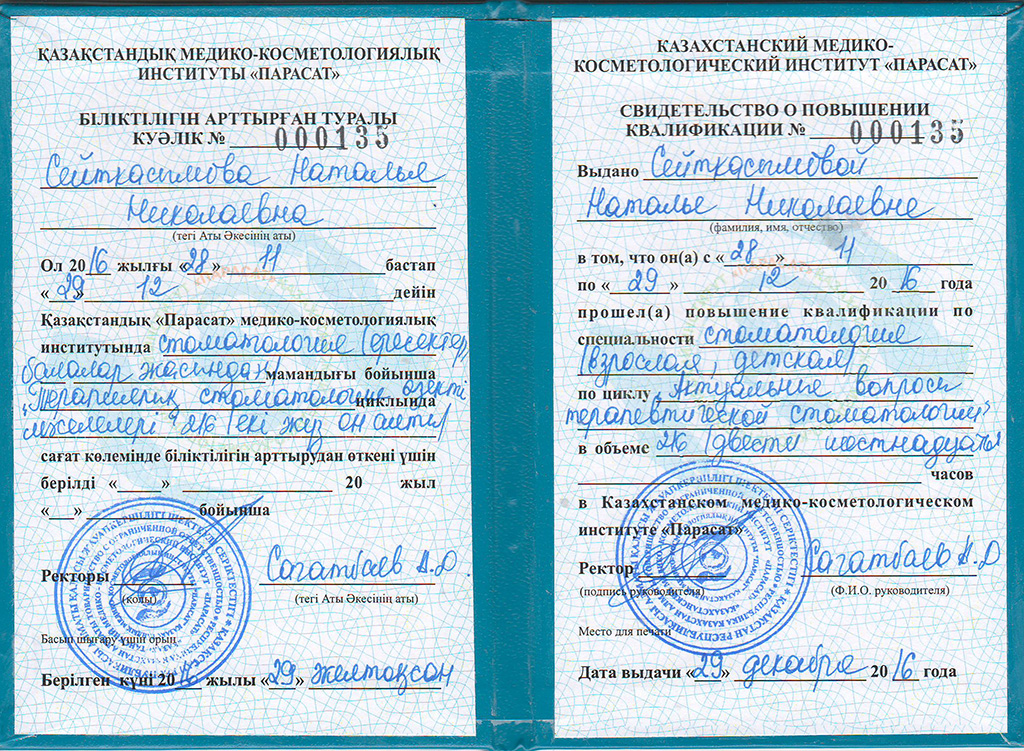 ҚАЗАҚСТАНДЫҚ МЕДИКО-КОСМЕТОЛОГИЯЛЫҚ
ИНСТИТУТЫ «ПАРАСАТ»
БІЛІКТІЛІГІН АРТТЫРҒАН ТУРАЛЫ
КУӘЛІК № 000135
Сейткасымова Наталья
Николаевна
(тегі Аты Әкесінің аты)
Ол 2016 жылғы «28» 11 бастап
«29» 12 дейін
Қазақстандық «Парасат» медико-косметологиялық
институтында стоматология (ересектер,
балалар жасындағы) мамандығы бойынша
"Терапиялық стоматология өзекті циклында
мәселелері" 216 (екі жүз он алты)
сағат көлемінде біліктілігін арттырудан өткені үшін
берілді «___» ___ 20 жыл
«___» ___ бойынша
Ректоры Сагатбаев А.Д
(қолы) (тегі Аты Әкесінің аты)
Басып шығару үшін орын
Берілген күні 2016 жылы «29» желтоқсан
КАЗАХСТАНСКИЙ МЕДИКО-
КОСМЕТОЛОГИЧЕСКИЙ ИНСТИТУТ «ПАРАСАТ»
СВИДЕТЕЛЬСТВО О ПОВЫШЕНИИ
КВАЛИФИКАЦИИ № 000135
Выдано Сейткасымовой
Наталье Николаевне
(фамилия, имя, отчество)
в том, что он(а) с «28» 11
по «29» 12 2016 года
прошел(а) повышение квалификации по
специальности стоматология
(взрослая, детская)
по циклу "Актуальные вопросы
терапевтической стоматологии"
в объеме 216 (двести шестнадцать)
часов
в Казахстанском медико-косметологическом
институте «Парасат»
Ректор Сагатбаев А.Д
(подпись руководителя) (Ф.И.О. руководителя)
Место для печати
Дата выдачи «29» декабря 2016 года